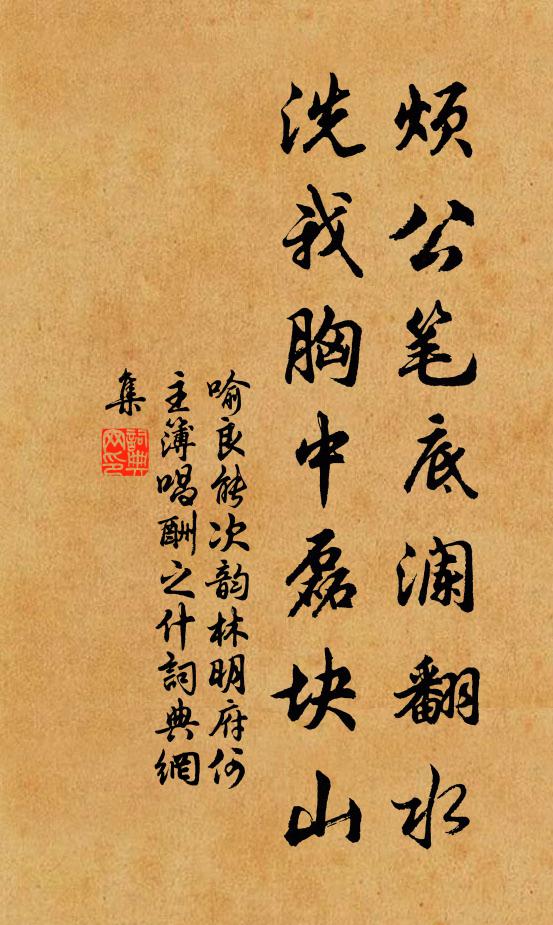 烦公笔底澜翻水
洗我胸中磊块山
喻良能次韵林明府何
主薄唱酬之什詞典網
集
詞典
网印